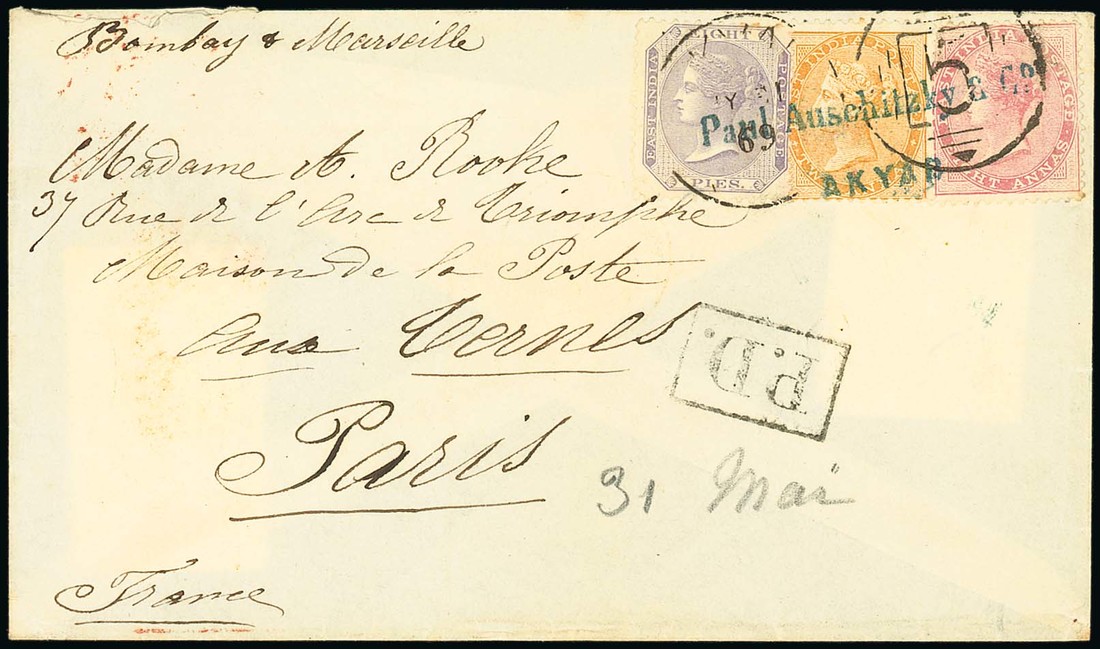 Bombay & Marseille
EAST INDIA
EIGHT
PIES.
EAST INDIA POSTAGE
EIGHT ANNAS
69
5
Paul Auschitzky & Co
AKYAB
Madame A. Rooke
37 Rue de l'Arc de Triomphe
Maison de la Poste
aux Ternes
Paris
P.D.
31 Mai
France